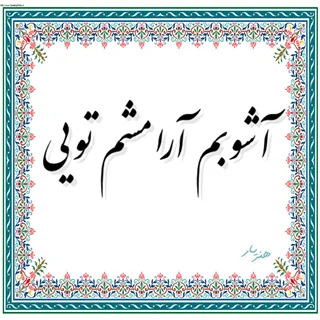 آشوبم آرامشم تویی
هنریار